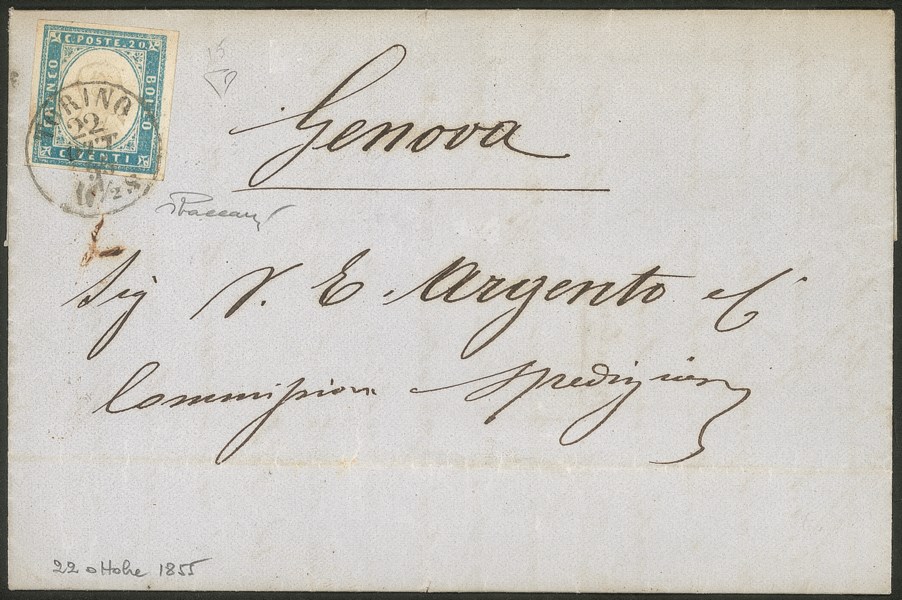 C. POSTE. 20.
FRANCO
BOLLO
CENTI
TORINO
22
OTT
Genova
Sig V. E. Argento e C
Commission e Spedizion
22 ottobre 1855